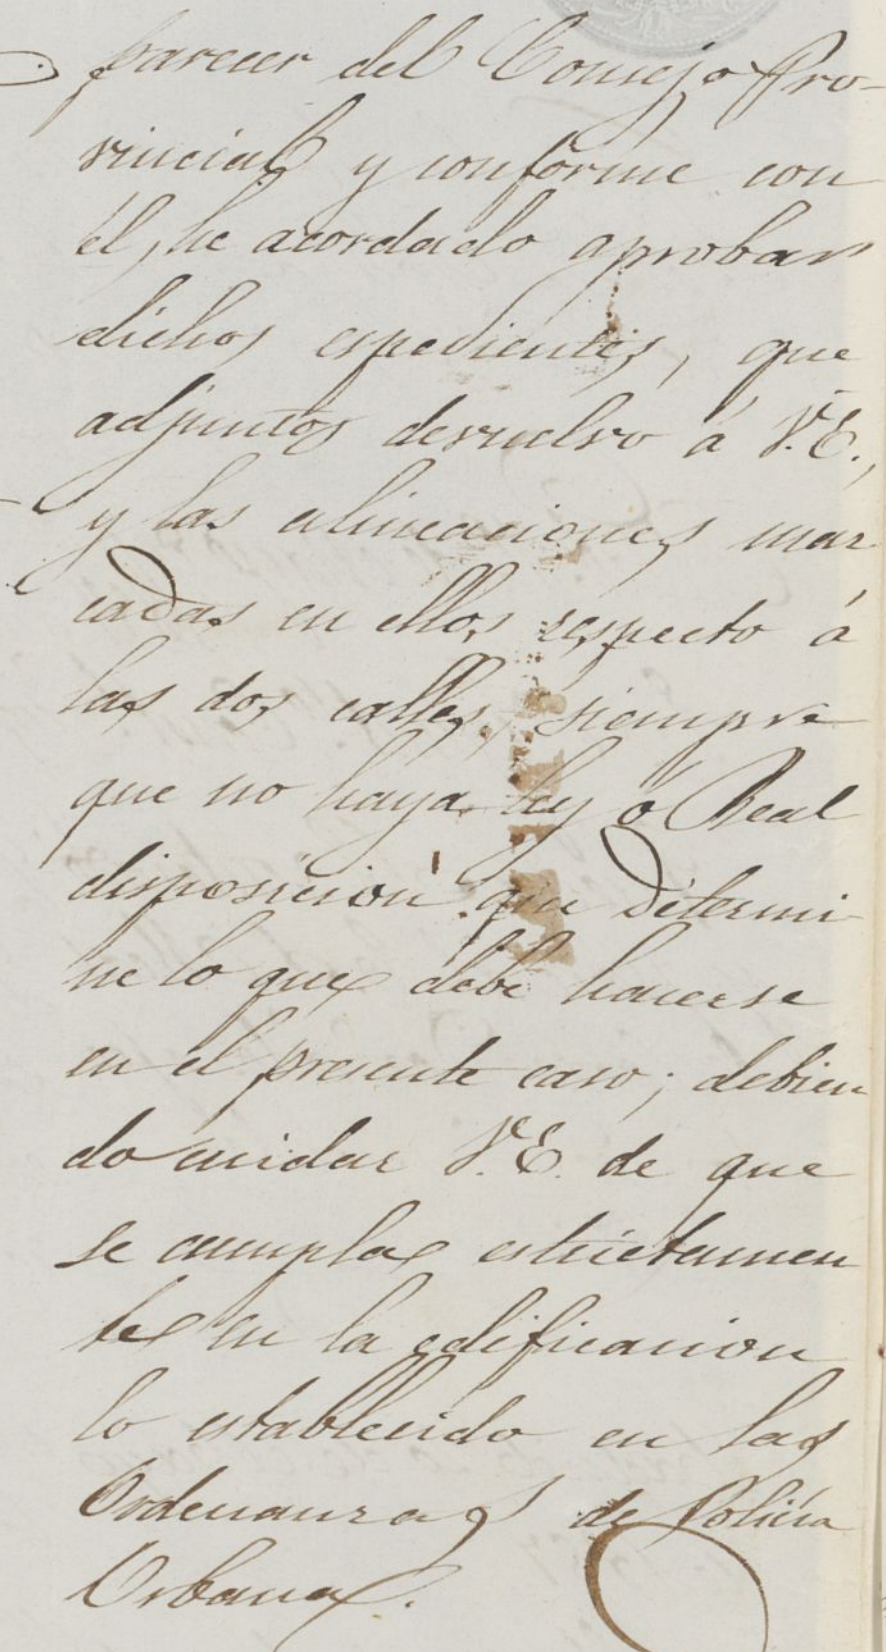 parecer del Consejo Pro-
vincial y conforme con
él, he acordado aprobar
dichos espedientes, que
adjuntos devuelvo á V.E.,
y las alineaciones mar
cadas en ellos respecto á
las dos calles, siempre
que no haya ley ó Real
disposicion que determi-
ne lo que debe hacerse
en el presente caso; debien
do cuidar V.E. de que
se cumpla estrictamen
te en la edificacion
lo establecido en las
Ordenanzas de Policía
Urbana.